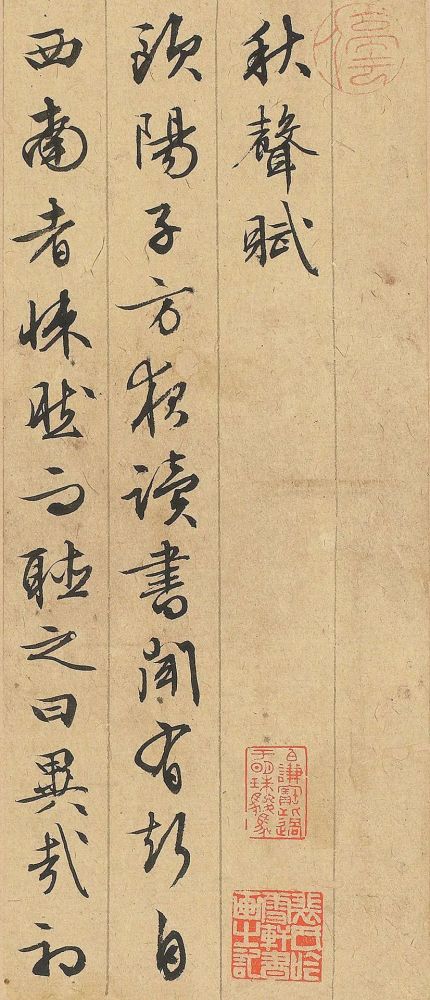 停雲
秋聲賦
歐陽子方夜讀書聞有聲自
西南者悚然而聽之曰異哉初